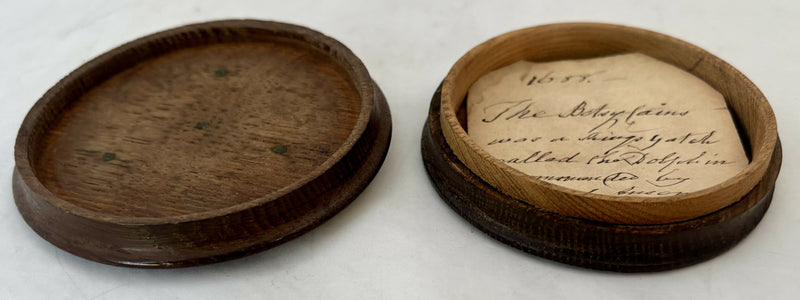 1688.
The Betsy Cains
was a Kings yatch
called the Dolphin
commanded by